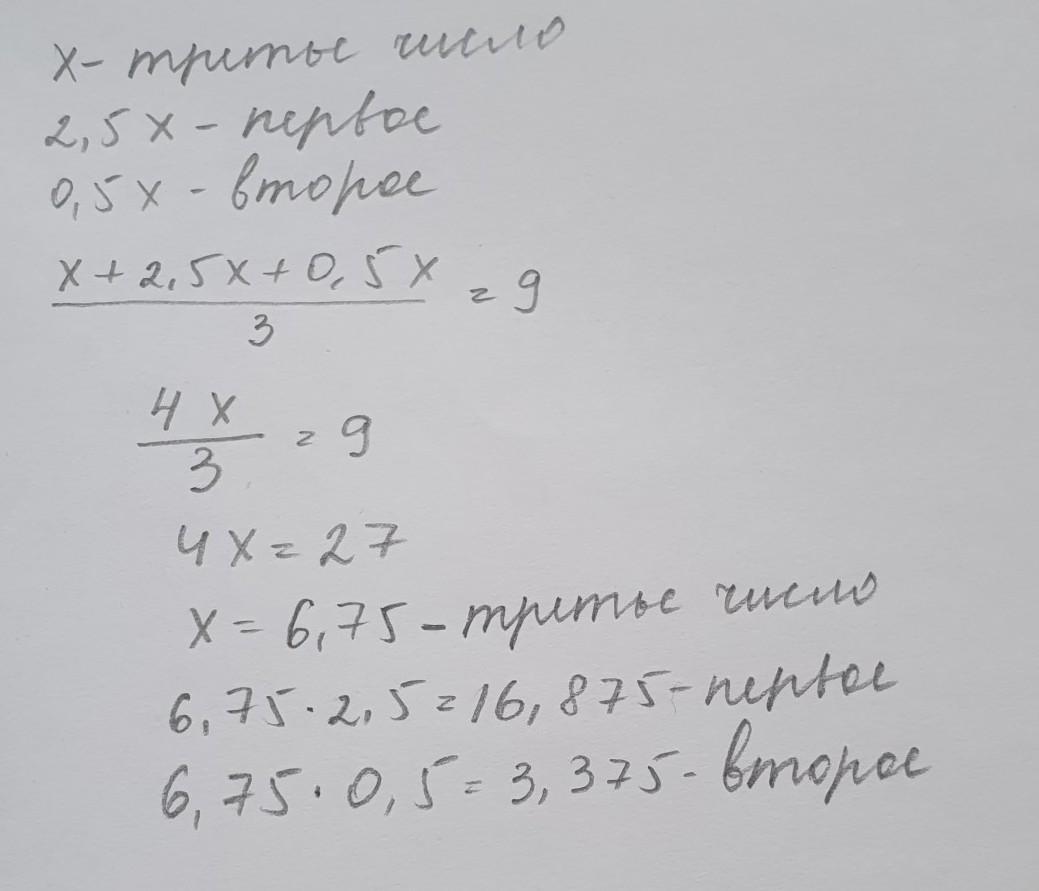 x - третье число
2,5x - первое
0,5x - второе
x + 2,5x + 0,5x
= 9
3
4x
= 9
3
4x = 27
x = 6,75 - третье число
6,75 · 2,5 = 16,875 - первое
6,75 · 0,5 = 3,375 - второе